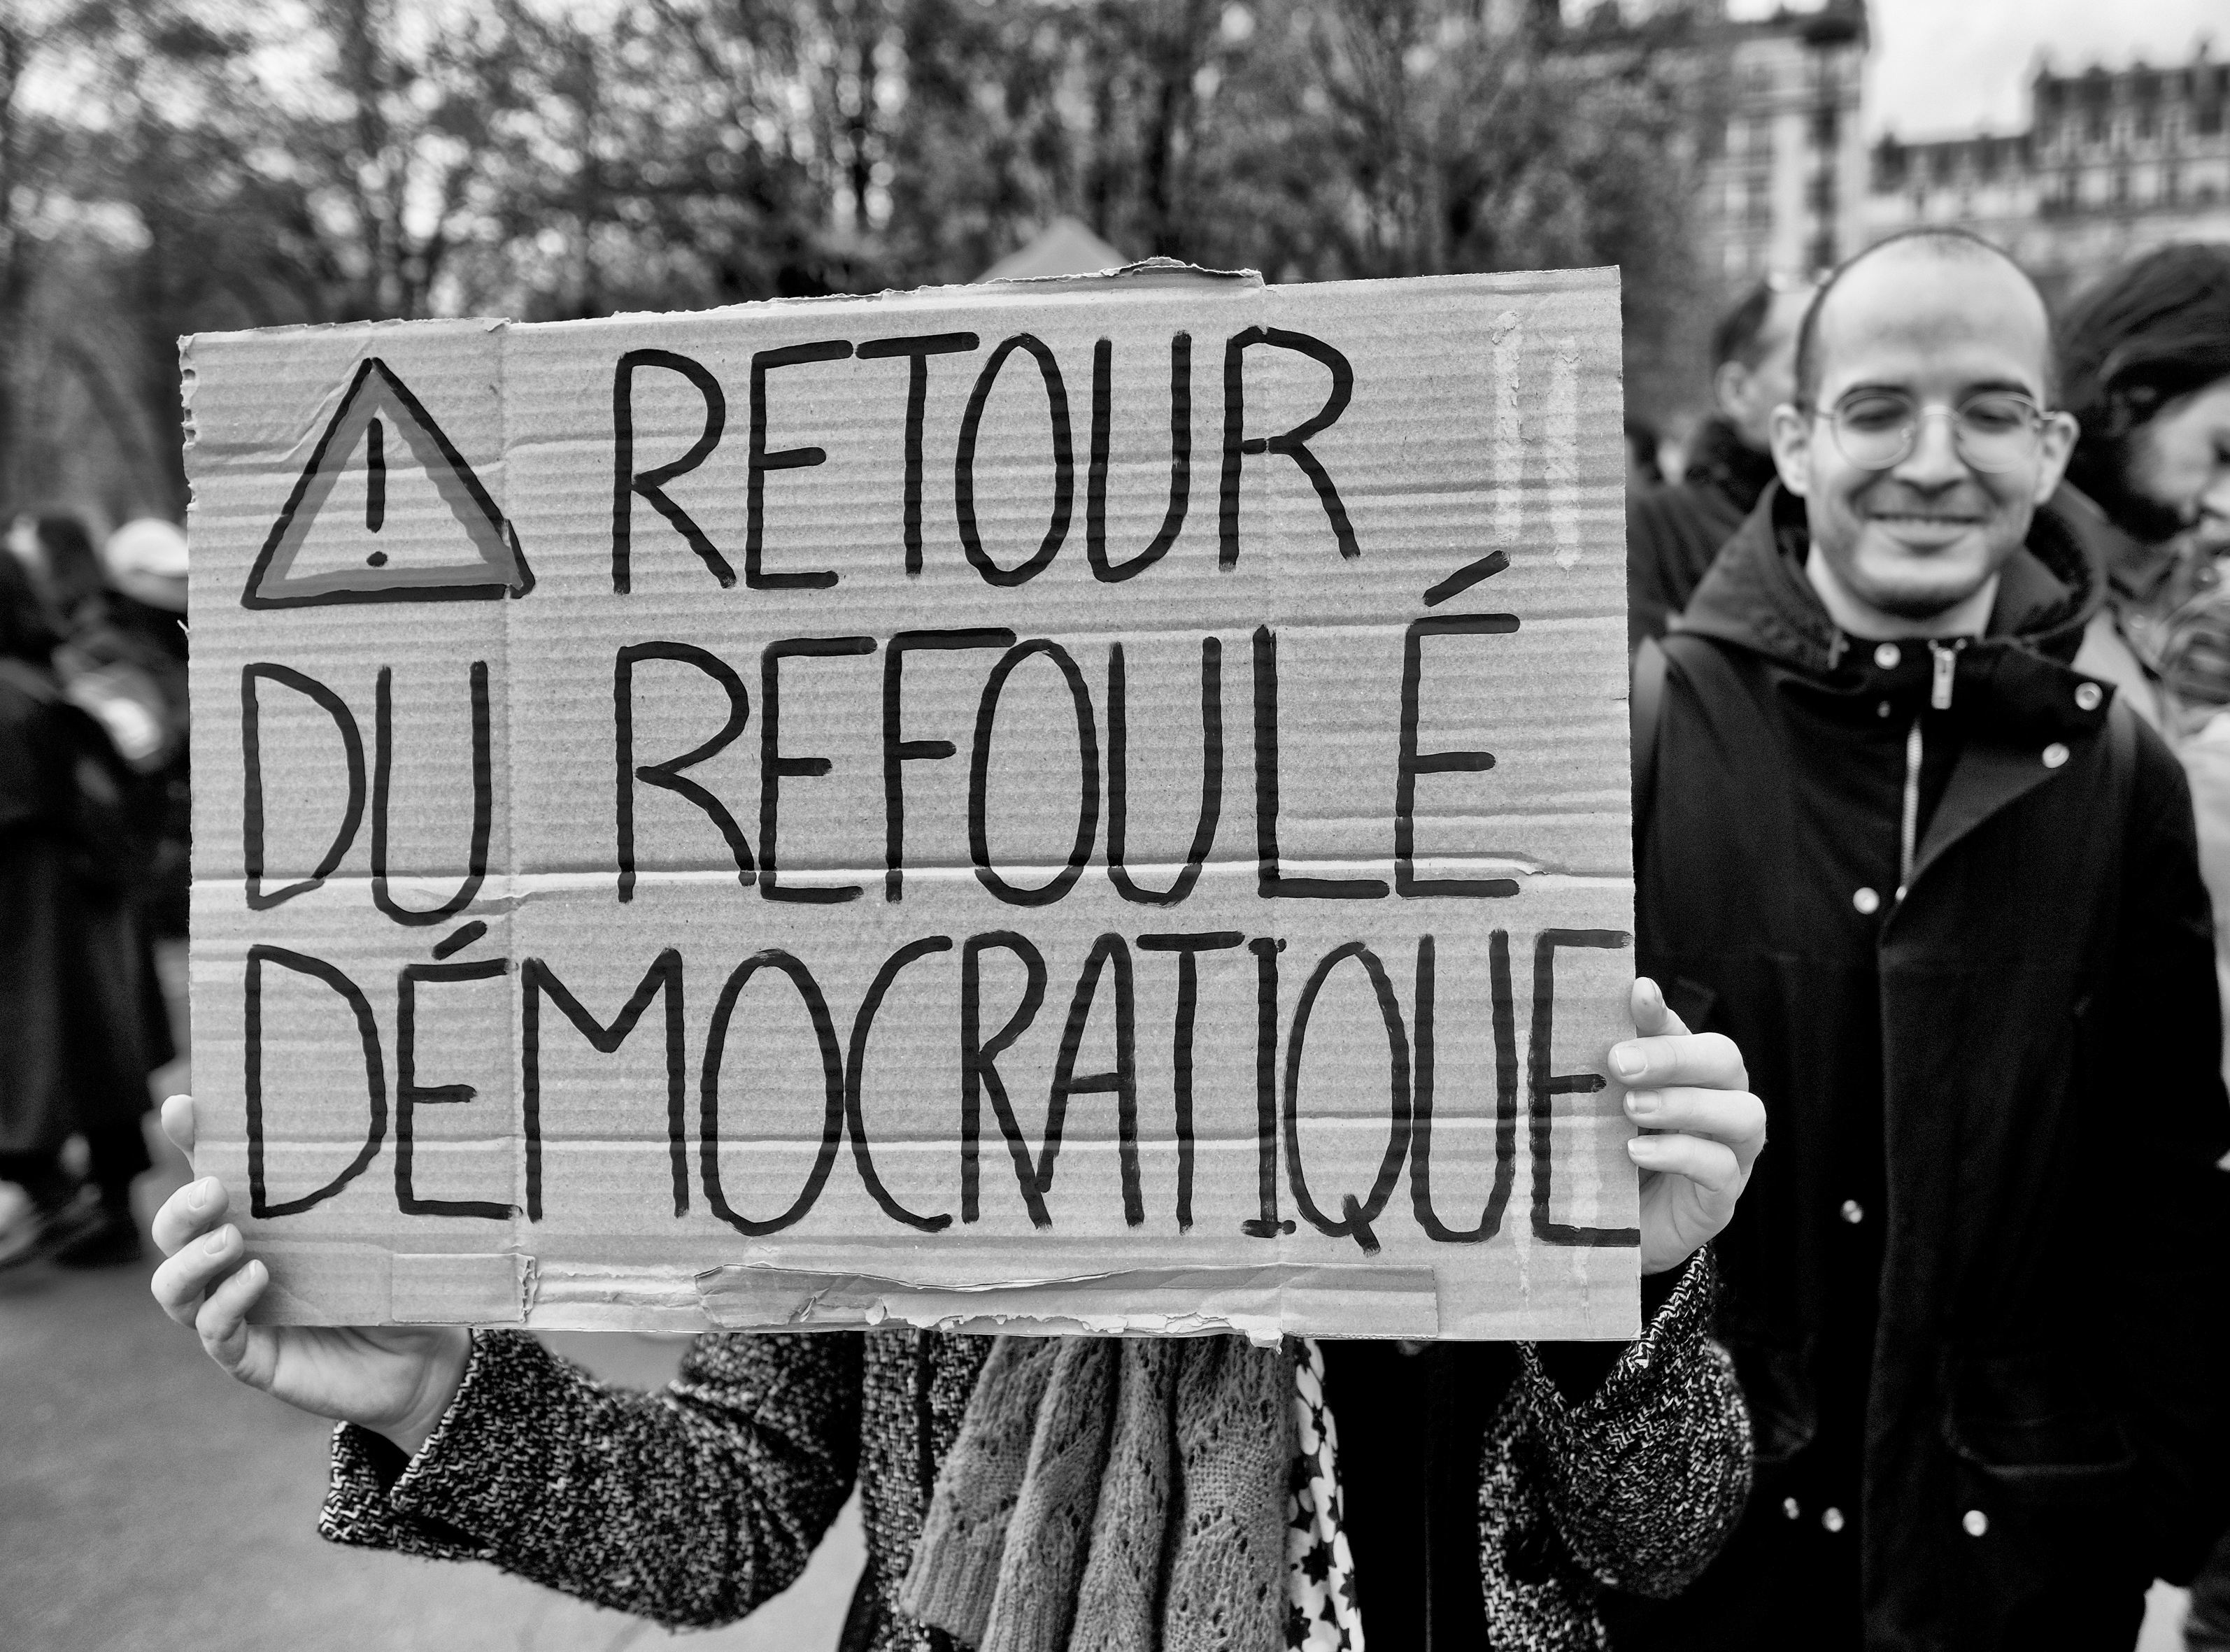 ! RETOUR
DU REFOULÉ
DÉMOCRATIQUE